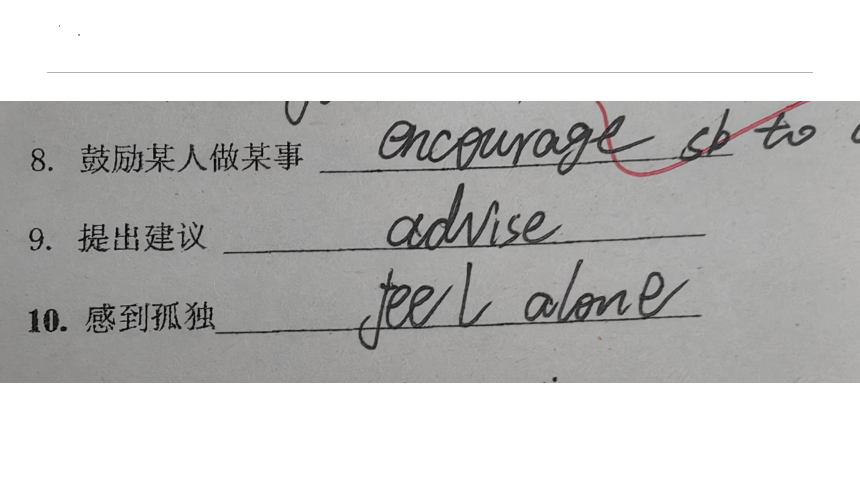 8. 鼓励某人做某事 encourage sb to
9. 提出建议 advise
10. 感到孤独 feel alone